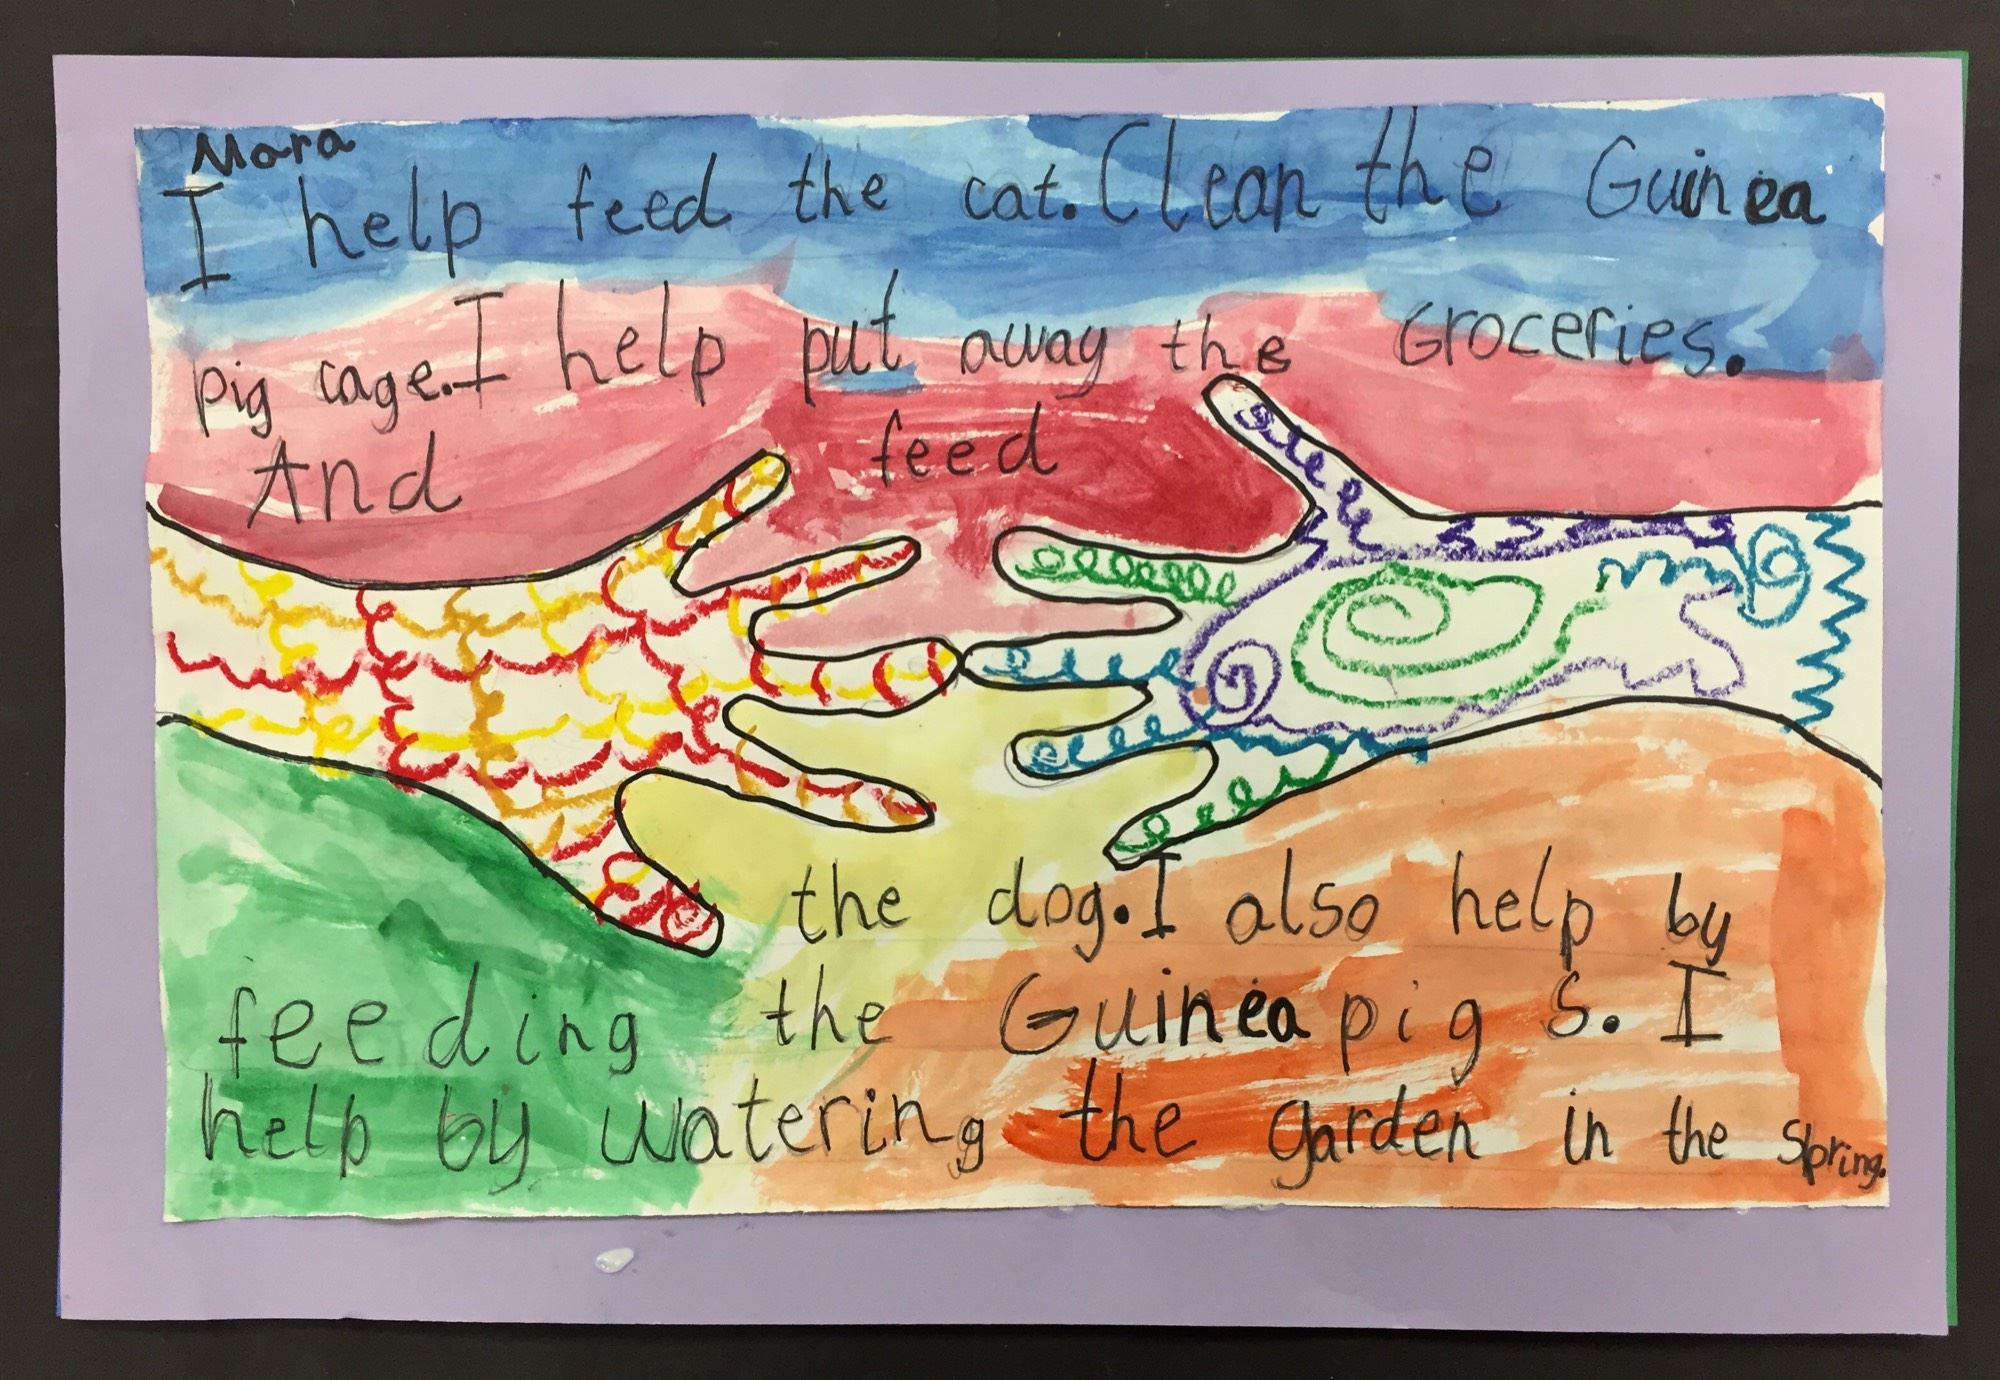 Mara
I help feed the cat. Clean the Guinea
pig cage. I help put away the Groceries.
And feed
the dog. I also help by
feeding the Guinea pig s. I
help by watering the garden in the Spring.